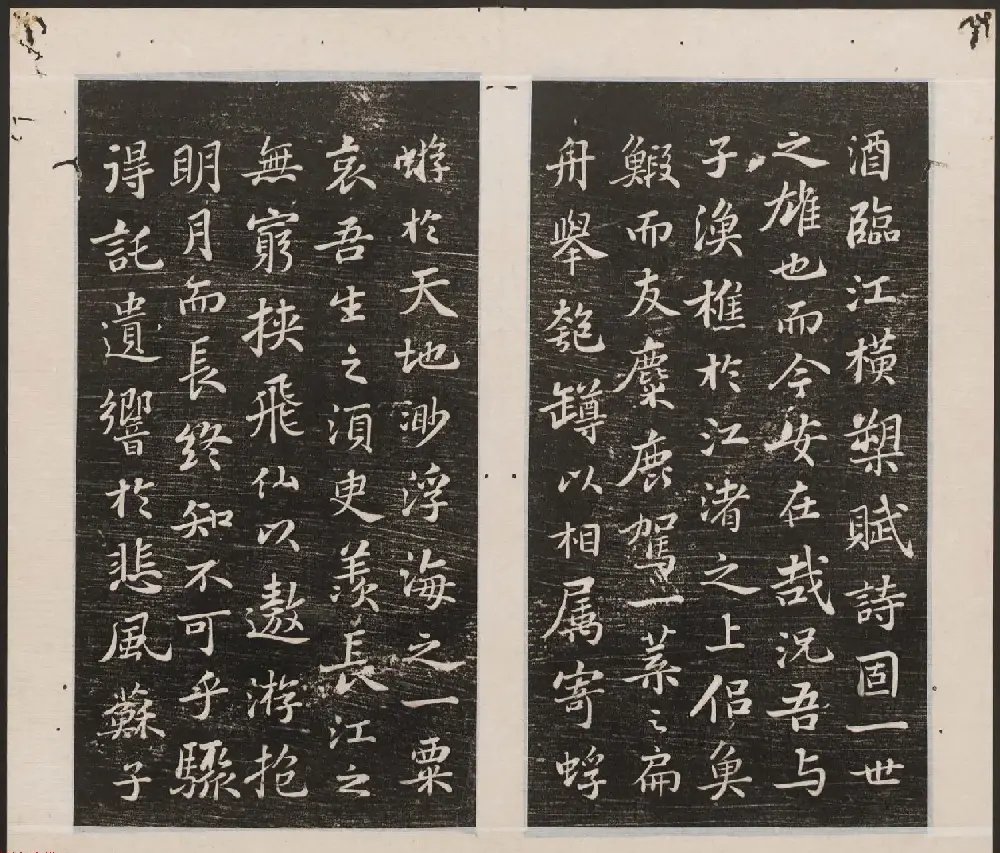 酒臨江橫槊賦詩固一世
之雄也而今安在哉況吾与
子漁樵於江渚之上侶魚
鰕而友麋鹿駕一葉之扁
舟舉匏罇以相属寄蜉
蝣於天地渺浮海之一粟
哀吾生之須臾羨長江之
無窮挾飛仙以遨游抱
明月而長終知不可乎驟
得託遺響於悲風蘇子